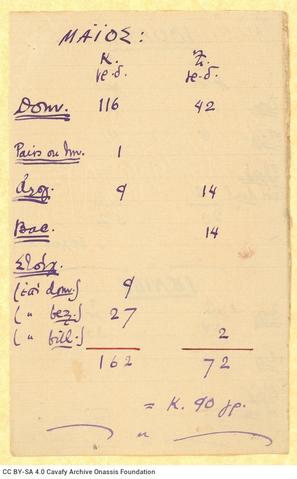 ΜΑΪΟΣ:
Κ. Ζ.
γρ.δ. γρ.δ.
Domv. 116 42
Pairs ou Im. 1
Ἀγορ. 9 14
Bac. 14
Στοίχ.
(ἐπὶ domv.) 9
( " bez.) 27
( " bill.) 2
162 72
= Κ. 90 γρ.
"
CC BY-SA 4.0 Cavafy Archive Onassis Foundation